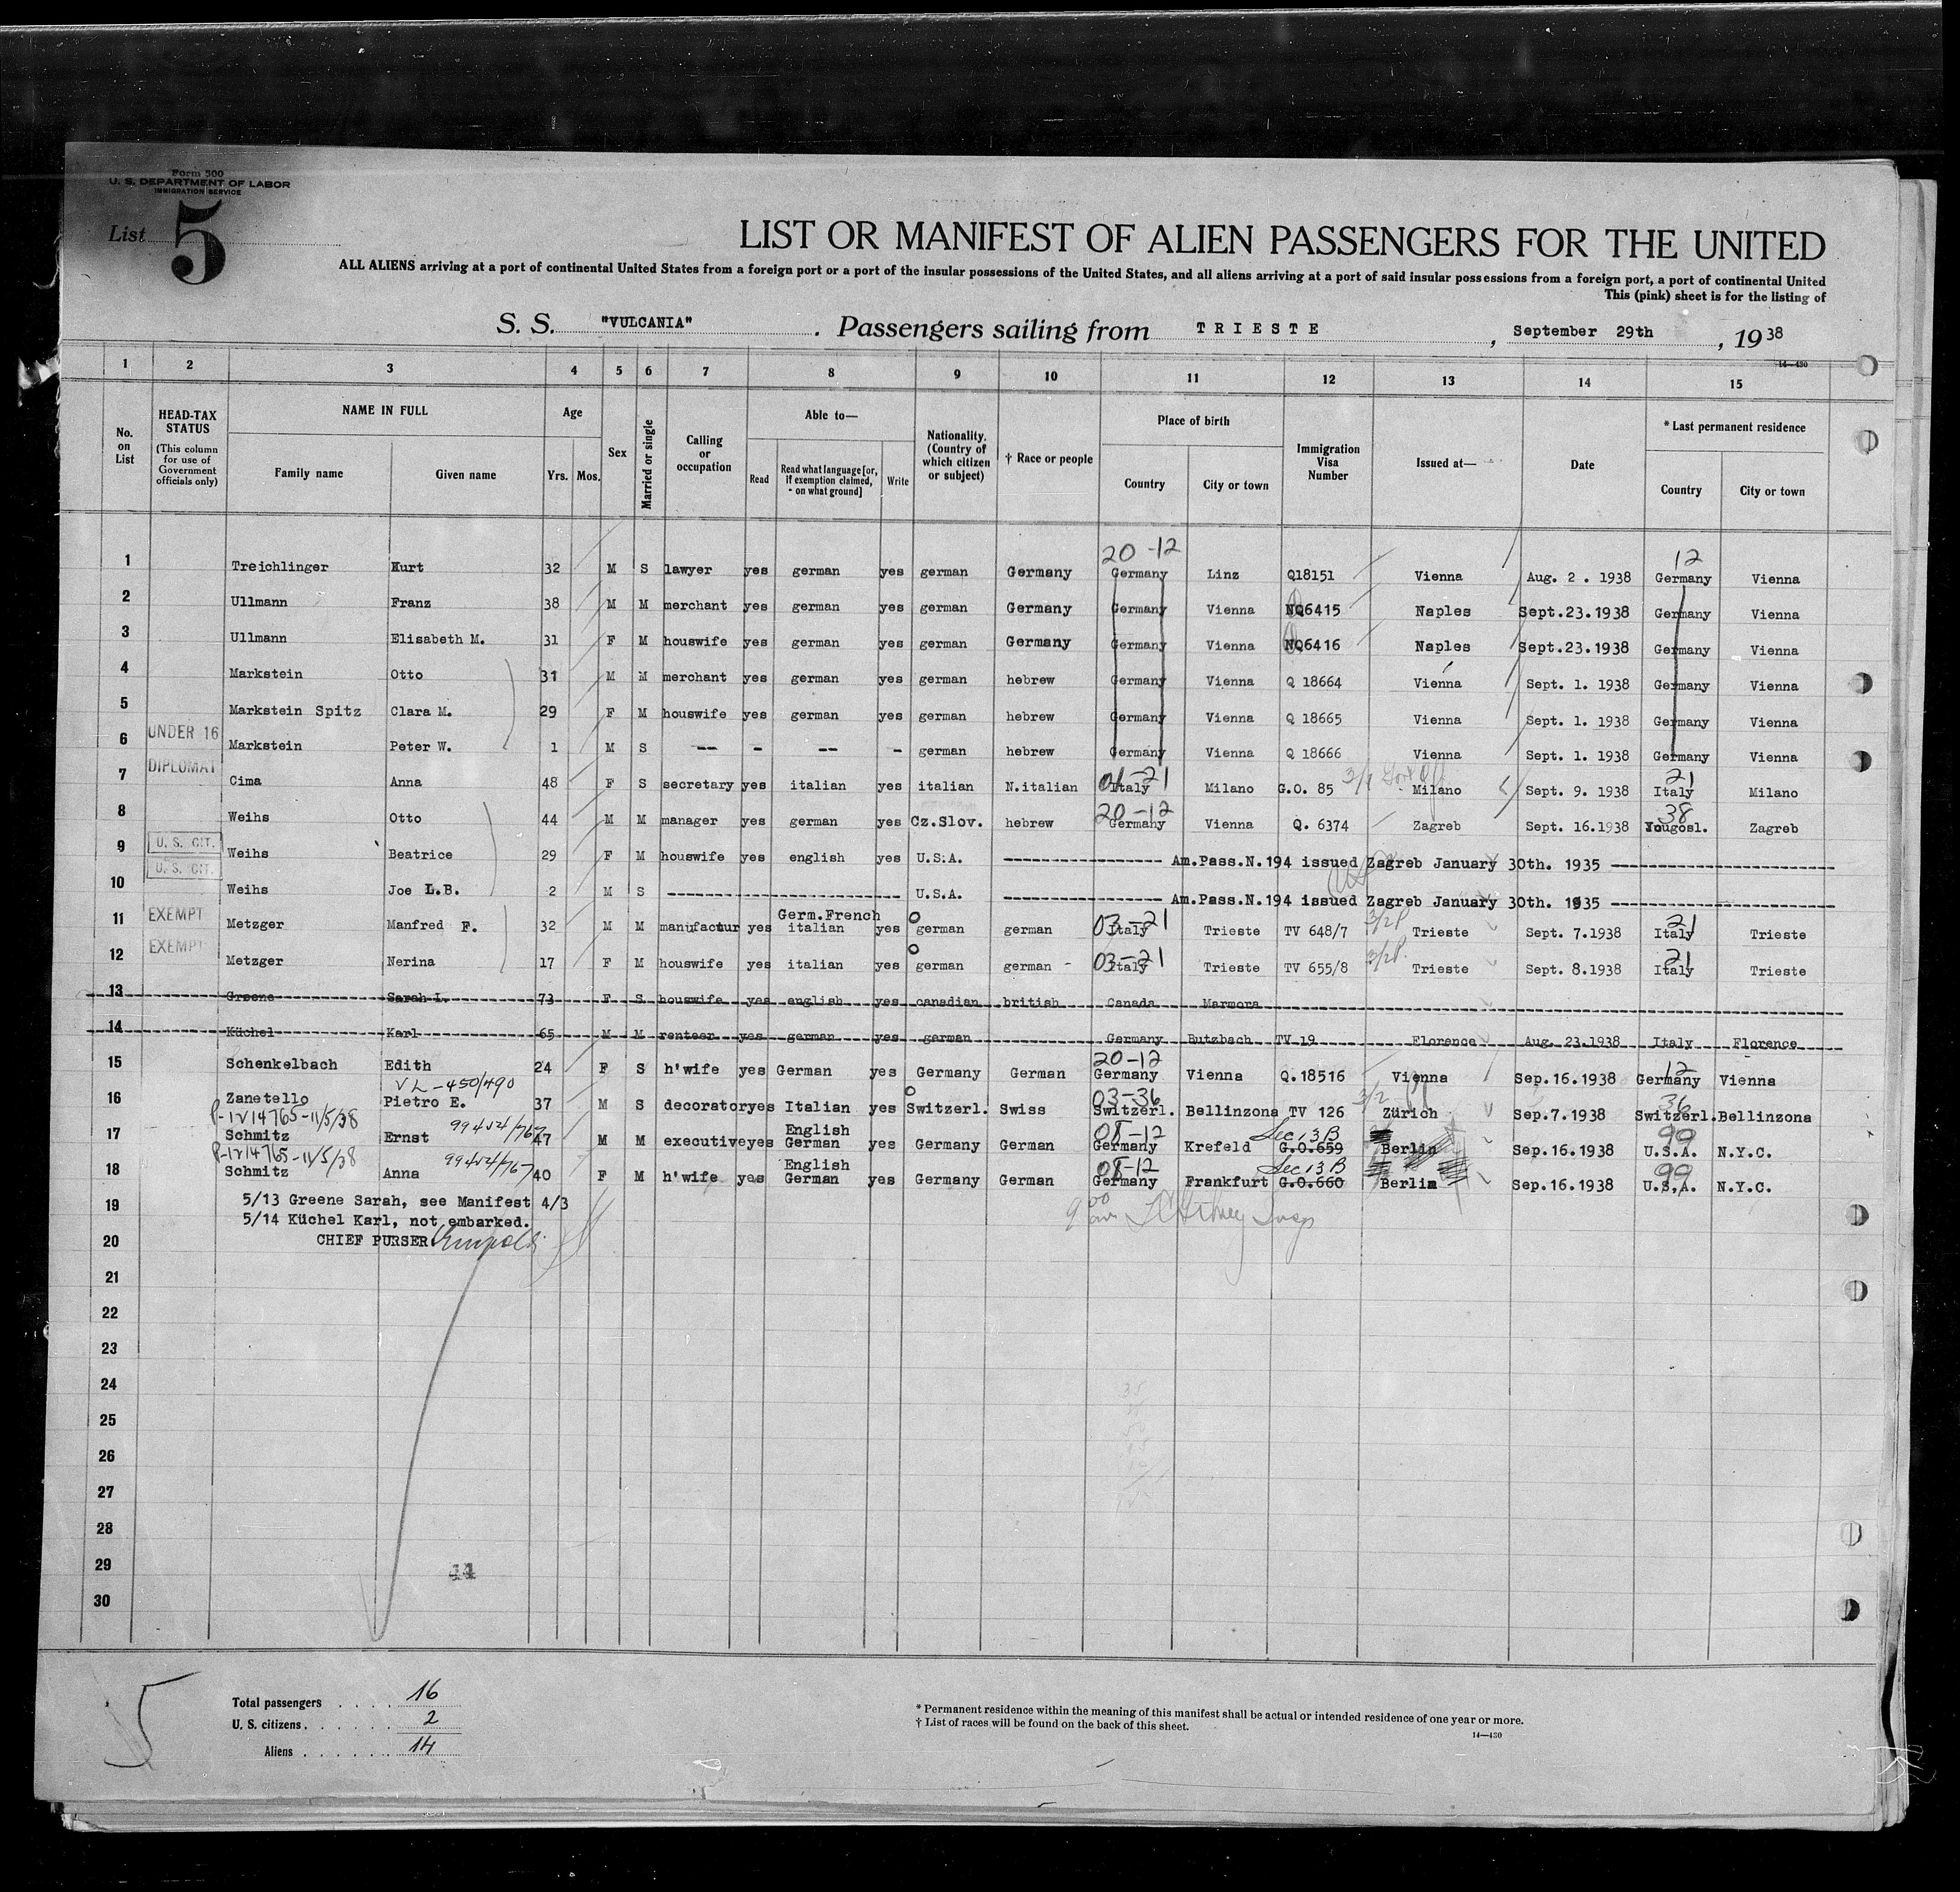 Form 500
U. S. DEPARTMENT OF LABOR
IMMIGRATION SERVICE
List 5
LIST OR MANIFEST OF ALIEN PASSENGERS FOR THE UNITED
ALL ALIENS arriving at a port of continental United States from a foreign port or a port of the insular possessions of the United States, and all aliens arriving at a port of said insular possessions from a foreign port, a port of continental United
This (pink) sheet is for the listing of
S. S. "VULCANIA" . Passengers sailing from TRIESTE , September 29th , 1938
14-430
1 2 3 4 5 6 7 8 9 10 11 12 13 14 15
No. on List
HEAD-TAX STATUS
(This column for use of Government officials only)
NAME IN FULL
Family name Given name
Age
Yrs. Mos.
Sex
Married or single
Calling or occupation
Able to—
Read Read what language [or, if exemption claimed, on what ground] Write
Nationality. (Country of which citizen or subject)
† Race or people
Place of birth
Country City or town
Immigration Visa Number
Issued at—
Date
* Last permanent residence
Country City or town
20-12 12
1 Treichlinger Kurt 32 M S lawyer yes german yes german Germany Germany Linz Q18151 Vienna Aug. 2 . 1938 Germany Vienna
2 Ullmann Franz 38 M M merchant yes german yes german Germany Germany Vienna NQ6415 Naples Sept.23.1938 Germany Vienna
3 Ullmann Elisabeth M. 31 F M houswife yes german yes german Germany Germany Vienna NQ6416 Naples Sept.23.1938 Germany Vienna
4 Markstein Otto 31 M M merchant yes german yes german hebrew Germany Vienna Q 18664 Vienna Sept. 1. 1938 Germany Vienna
5 Markstein Spitz Clara M. 29 F M houswife yes german yes german hebrew Germany Vienna Q 18665 Vienna Sept. 1. 1938 Germany Vienna
6 UNDER 16 Markstein Peter W. 1 M S -- - -- - german hebrew Germany Vienna Q 18666 Vienna Sept. 1. 1938 Germany Vienna
01-21 21
7 DIPLOMAT Cima Anna 48 F S secretary yes italian yes italian N.italian Italy Milano G.O. 85 Milano Sept. 9. 1938 Italy Milano
20-12 38
8 Weihs Otto 44 M M manager yes german yes Cz.Slov. hebrew Germany Vienna Q. 6374 Zagreb Sept. 16.1938 Yougosl. Zagreb
9 U. S. CIT. Weihs Beatrice 29 F M houswife yes english yes U.S.A. ---------- Am.Pass.N.194 issued Zagreb January 30th. 1935 ----------
10 U. S. CIT. Weihs Joe L.B. 2 M S ---------- U.S.A. ---------- Am.Pass.N.194 issued Zagreb January 30th. 1935 ----------
Germ.French 03-21 3/2P 21
11 EXEMPT Metzger Manfred F. 32 M M manufactur yes italian yes german german Italy Trieste TV 648/7 Trieste Sept. 7.1938 Italy Trieste
03-21 3/2P. 21
12 EXEMPT Metzger Nerina 17 F M houswife yes italian yes german german Italy Trieste TV 655/8 Trieste Sept. 8.1938 Italy Trieste
13 Greene Sarah L. 73 F S houswife yes english yes canadian british Canada Marmora
14 Küchel Karl 65 M M renteer yes german yes german Germany Butzbach TV 19 Florence Aug. 23.1938 Italy Florence
20-12 12
15 Schenkelbach Edith 24 F S h'wife yes German yes Germany German Germany Vienna Q.18516 Vienna Sep.16.1938 Germany Vienna
VL-450/490 03-36 36
16 Zanetello Pietro E. 37 M S decorator yes Italian yes Switzerl. Swiss Switzerl. Bellinzona TV 126 Zürich Sep.7.1938 Switzerl. Bellinzona
English 08-12 Sec 13 B 99
17 Schmitz Ernst 47 M M executive yes German yes Germany German Germany Krefeld G.O.659 Berlin Sep.16.1938 U.S.A. N.Y.C.
English 08-12 Sec 13 B 99
18 Schmitz Anna 40 F M h'wife yes German yes Germany German Germany Frankfurt G.O.660 Berlin Sep.16.1938 U.S.A. N.Y.C.
19 5/13 Greene Sarah, see Manifest 4/3
5/14 Küchel Karl, not embarked.
20 CHIEF PURSER
21
22
23
24
25
26
27
28
29
44
30
5
Total passengers . . . . 16
U. S. citizens . . . . . . 2
Aliens . . . . . . . 14
* Permanent residence within the meaning of this manifest shall be actual or intended residence of one year or more.
† List of races will be found on the back of this sheet.
14—430